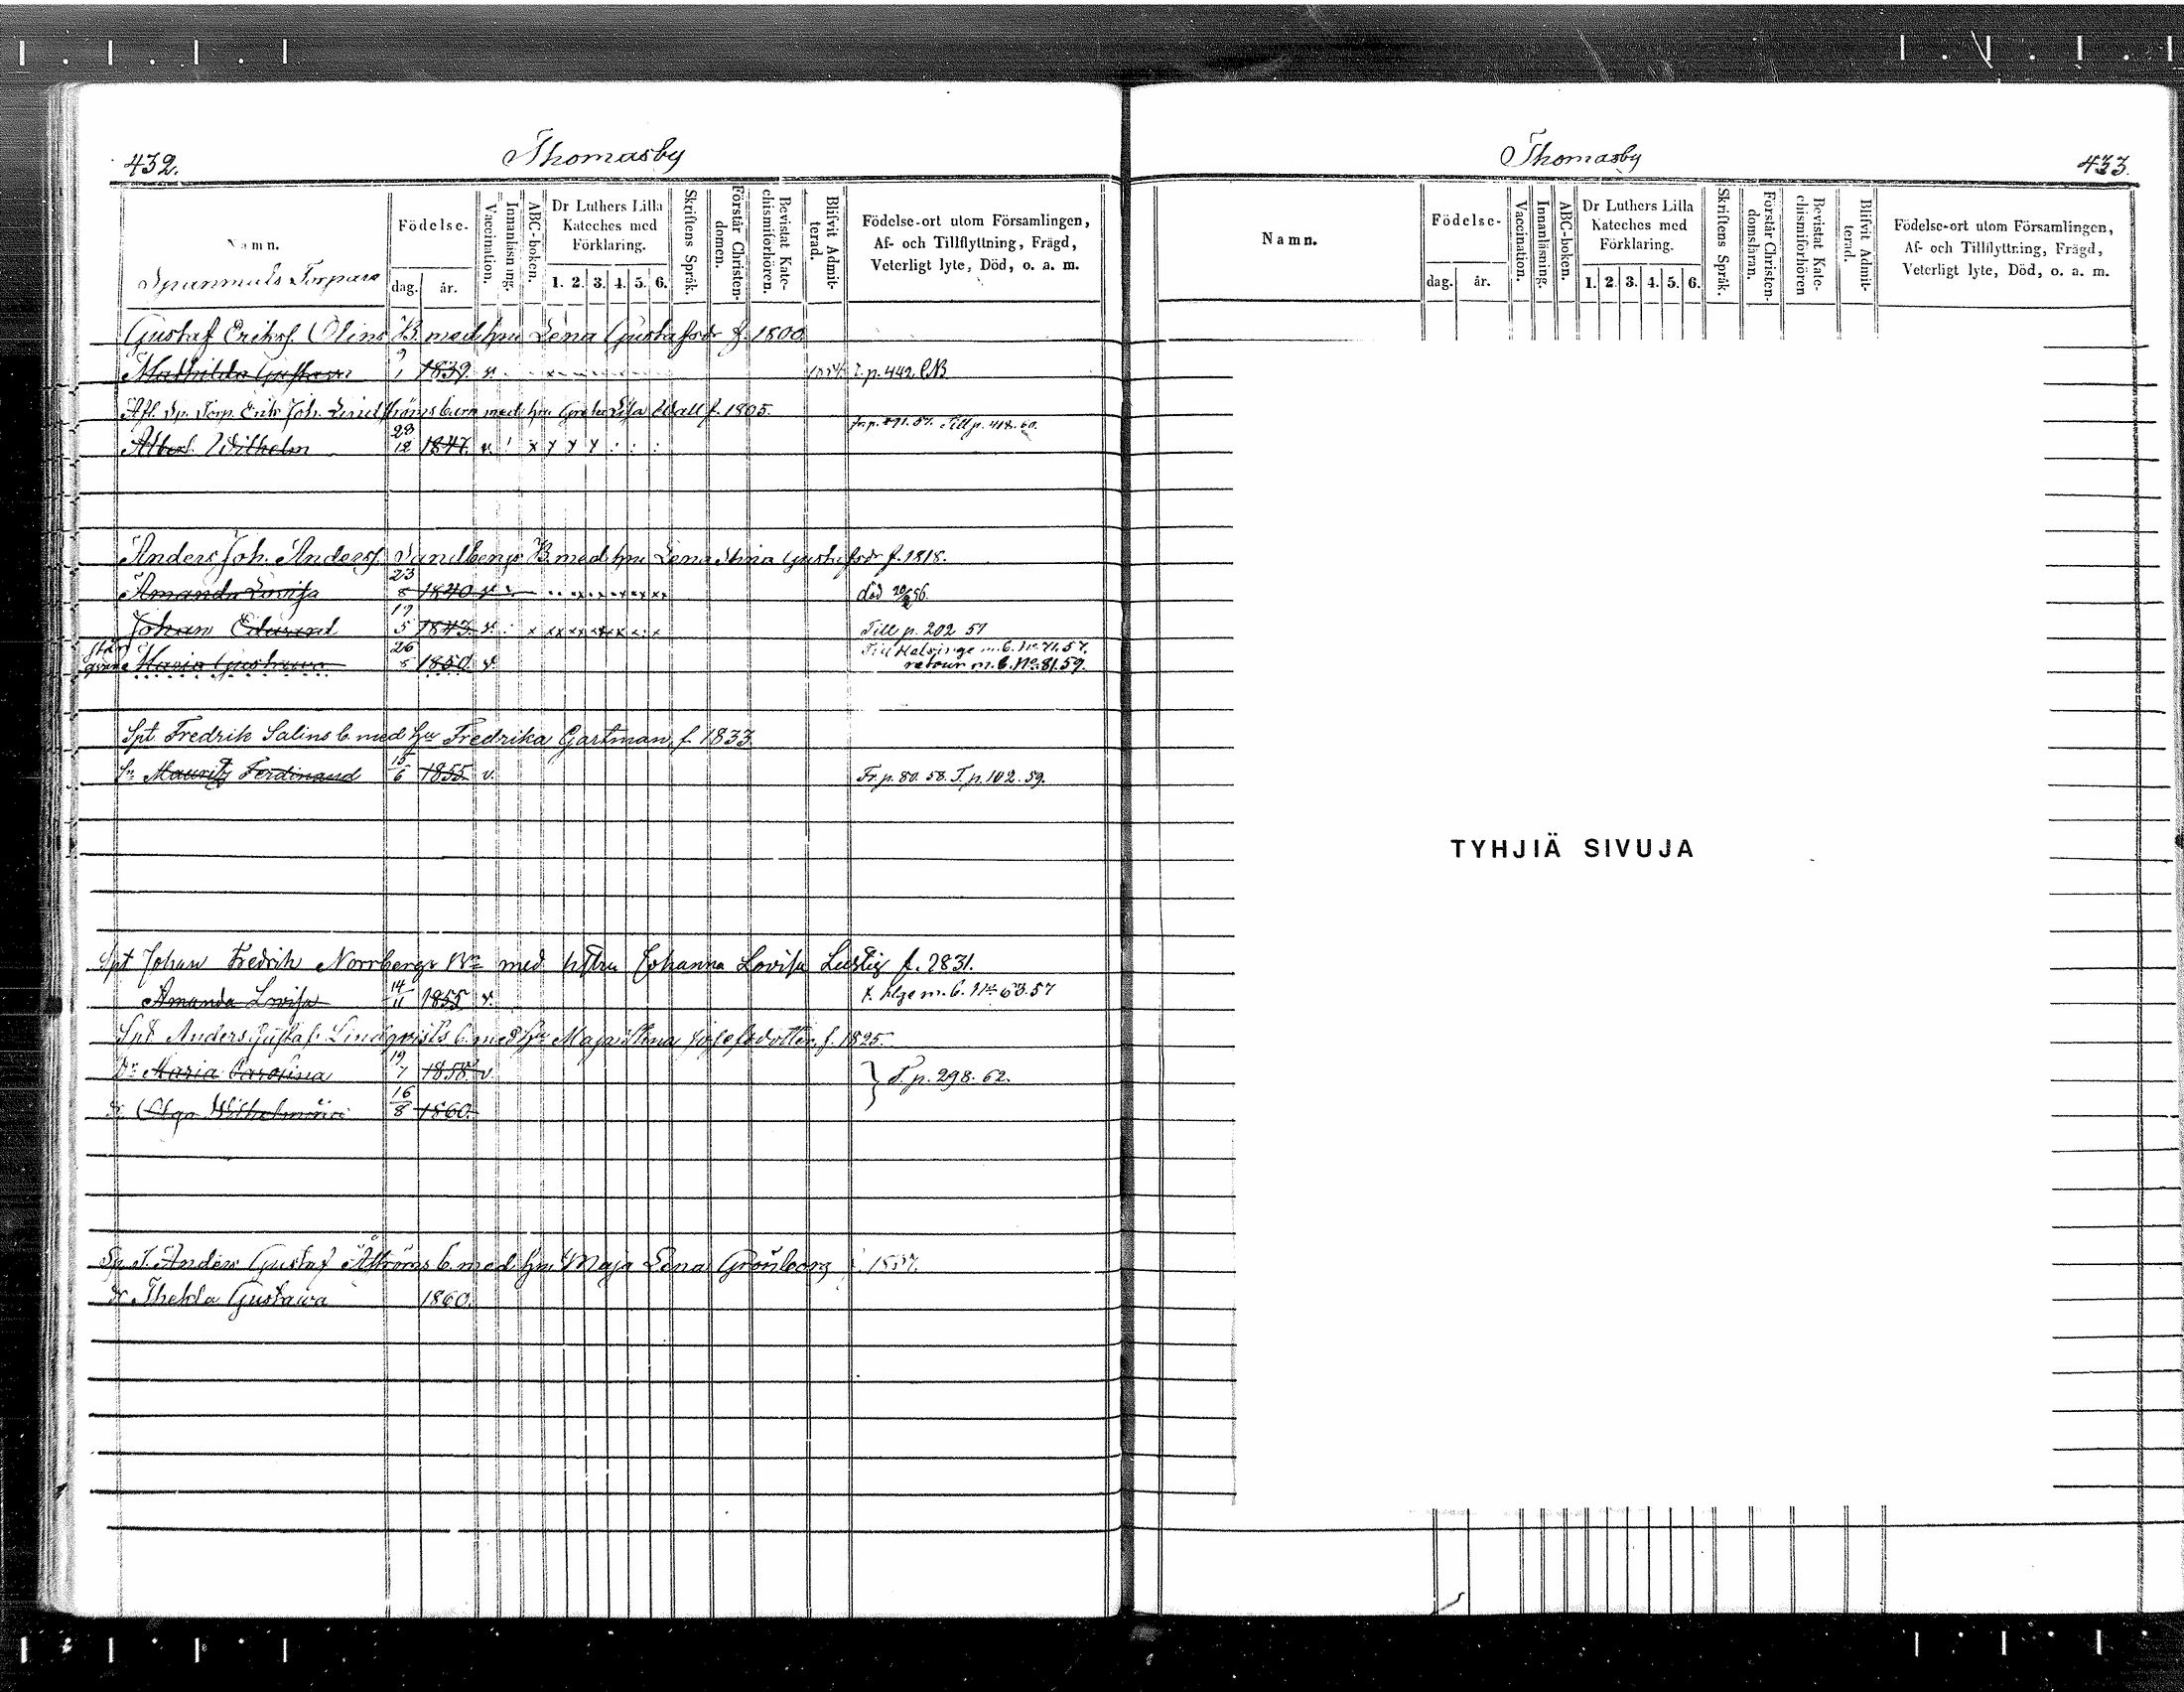 432.
Thomasby
Namn.
Spanmåls Torpare
Födelse-
dag. år.
Vaccination.
Innanläsning.
ABC-boken.
Dr Luthers Lilla Kateches med Förklaring.
1. 2. 3. 4. 5. 6.
Skriftens Språk.
Förstår Christen-domen.
Bevistat Kate-chismiförhören.
Blifvit Admit-terad.
Födelse-ort utom Församlingen,
Af- och Tillflyttning, Frägd,
Veterligt lyte, Död, o. a. m.
Gustaf Eriks. Olins B. med hu Lena Gustafsdr f. 1800
Mathilda Gustava 9/1 1839. v. T. p. 442
Afl. Sp. Torp. Erik Joh. Lindströms barn med hu Greta Lisa Wall f. 1805.
Albert Wilhelm 28/12 1847. v. Till p. 418. 60.
Anders Joh. Anders. Sandbergs B. med hu Lena Stina Gustafsdr f. 1818.
Amanda Lovisa 23/8 1840 v. död 56.
Johan Eduard 19/5 1843. v. Till p. 202 57
står qvar Maria Gustava 26/8 1850. v. Till Helsinge m. b. No. 71. 57.
retour m. b. No. 81. 59.
Spt. Fredrik Salins b. med hu Fredrika Gartman f. 1833
Sn Mauritz Ferdinand 15/6 1855 v. Fr. p. 80. 58. T. p. 102. 59.
Spt Johan Fredrik Norrbergs Bn med hstru Johanna Lovisa Lustig f. 1831.
Amanda Lovisa 14/11 1855 v. t. Hge m. b. No 63. 57
Spt Anders Gustaf Lindqvists b. med hu Maja Stina Josefsdotter f. 1825.
Dr Maria Carolina 19/7 1858 v. } T. p. 298. 62.
dr Olga Wilhelmina 16/8 1860.
Sp. T. Anders Gustaf Åströms b. med hu Maja Lena Grönberg
dr Thekla Gustava 1860.
Thomasby
433.
Namn.
Födelse-
dag. år.
Vaccination.
Innanläsning.
ABC-boken.
Dr Luthers Lilla Kateches med Förklaring.
1. 2. 3. 4. 5. 6.
Skriftens Språk.
Förstår Christen-domsläran.
Bevistat Kate-chismiförhören
Blifvit Admit-terad.
Födelse-ort utom Församlingen,
Af- och Tillflyttning, Frägd,
Veterligt lyte, Död, o. a. m.
TYHJIÄ SIVUJA